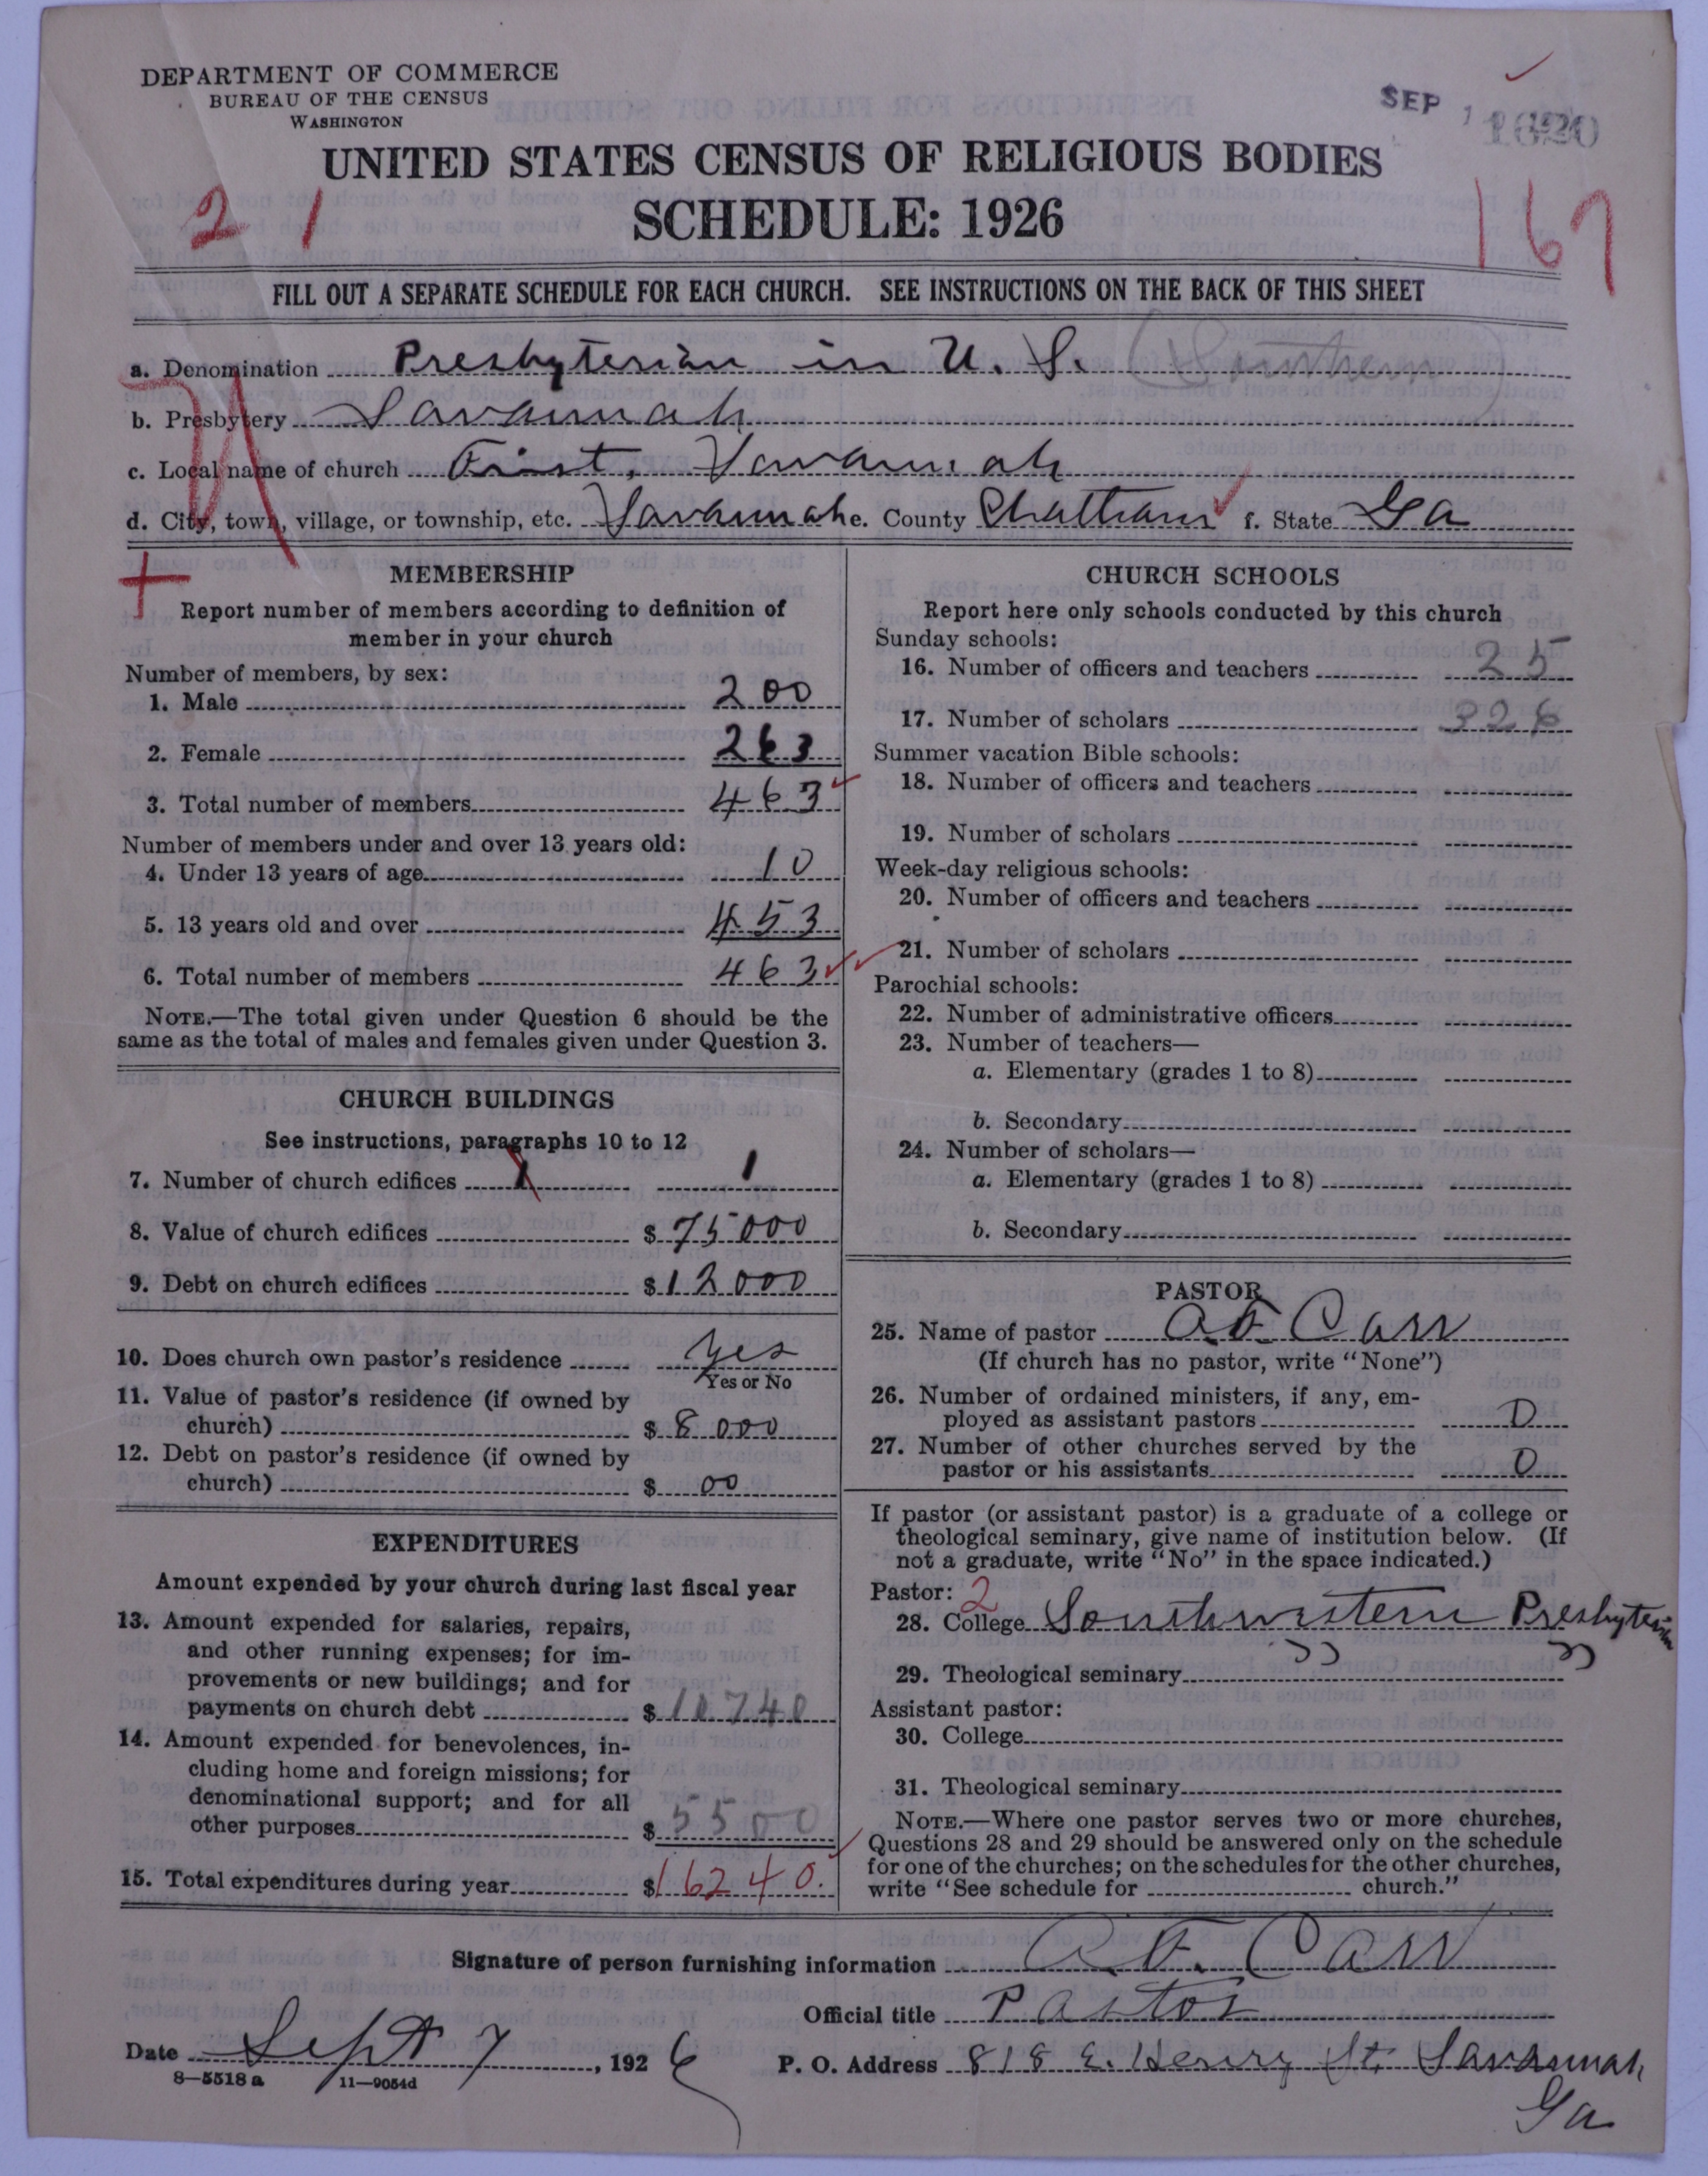 DEPARTMENT OF COMMERCE
BUREAU OF THE CENSUS
WASHINGTON
SEP 1
UNITED STATES CENSUS OF RELIGIOUS BODIES
SCHEDULE: 1926
2 1
167
FILL OUT A SEPARATE SCHEDULE FOR EACH CHURCH. SEE INSTRUCTIONS ON THE BACK OF THIS SHEET
a. Denomination Presbyterian in U. S. (Southern)
b. Presbytery Savannah
c. Local name of church First, Savannah
d. City, town, village, or township, etc. Savannah e. County Chatham f. State Ga
MEMBERSHIP
Report number of members according to definition of
member in your church
Number of members, by sex:
1. Male 200
2. Female 263
3. Total number of members 463
Number of members under and over 13 years old:
4. Under 13 years of age 10
5. 13 years old and over 453
6. Total number of members 463
NOTE.—The total given under Question 6 should be the
same as the total of males and females given under Question 3.
CHURCH BUILDINGS
See instructions, paragraphs 10 to 12
7. Number of church edifices 1 1
8. Value of church edifices $ 75000
9. Debt on church edifices $ 12000
10. Does church own pastor's residence Yes
Yes or No
11. Value of pastor's residence (if owned by
church) $ 8000
12. Debt on pastor's residence (if owned by
church) $ 00
EXPENDITURES
Amount expended by your church during last fiscal year
13. Amount expended for salaries, repairs,
and other running expenses; for im-
provements or new buildings; and for
payments on church debt $ 10740
14. Amount expended for benevolences, in-
cluding home and foreign missions; for
denominational support; and for all
other purposes $ 5500
15. Total expenditures during year $ 16240.
CHURCH SCHOOLS
Report here only schools conducted by this church
Sunday schools:
16. Number of officers and teachers 25
17. Number of scholars 326
Summer vacation Bible schools:
18. Number of officers and teachers
19. Number of scholars
Week-day religious schools:
20. Number of officers and teachers
21. Number of scholars
Parochial schools:
22. Number of administrative officers
23. Number of teachers—
a. Elementary (grades 1 to 8)
b. Secondary
24. Number of scholars—
a. Elementary (grades 1 to 8)
b. Secondary
PASTOR
25. Name of pastor A. F. Carr
(If church has no pastor, write "None")
26. Number of ordained ministers, if any, em-
ployed as assistant pastors 0
27. Number of other churches served by the
pastor or his assistants 0
If pastor (or assistant pastor) is a graduate of a college or
theological seminary, give name of institution below. (If
not a graduate, write "No" in the space indicated.)
Pastor: 2
28. College Southwestern Presbyterian
29. Theological seminary " "
Assistant pastor:
30. College
31. Theological seminary
NOTE.—Where one pastor serves two or more churches,
Questions 28 and 29 should be answered only on the schedule
for one of the churches; on the schedules for the other churches,
write "See schedule for church."
Signature of person furnishing information A. F. Carr
Official title Pastor
Date Sept 7, 1926 P. O. Address 818 E. Henry St. Savannah
Ga
8—5518 a 11—9054d